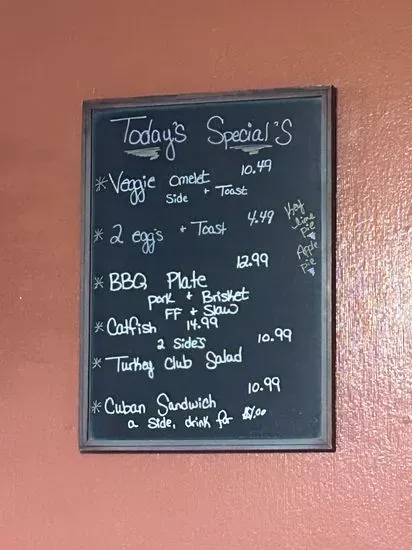 Today's Special's
10.49
* Veggie Omelet
Side + Toast
4.49
* 2 egg's + Toast
Key
lime
Pie
Apple
Pie
12.99
* BBQ Plate
Pork + Brisket
FF + Slaw
* Catfish 14.99
2 Side's
10.99
* Turkey Club Salad
10.99
* Cuban Sandwich
a side, drink for $1.00